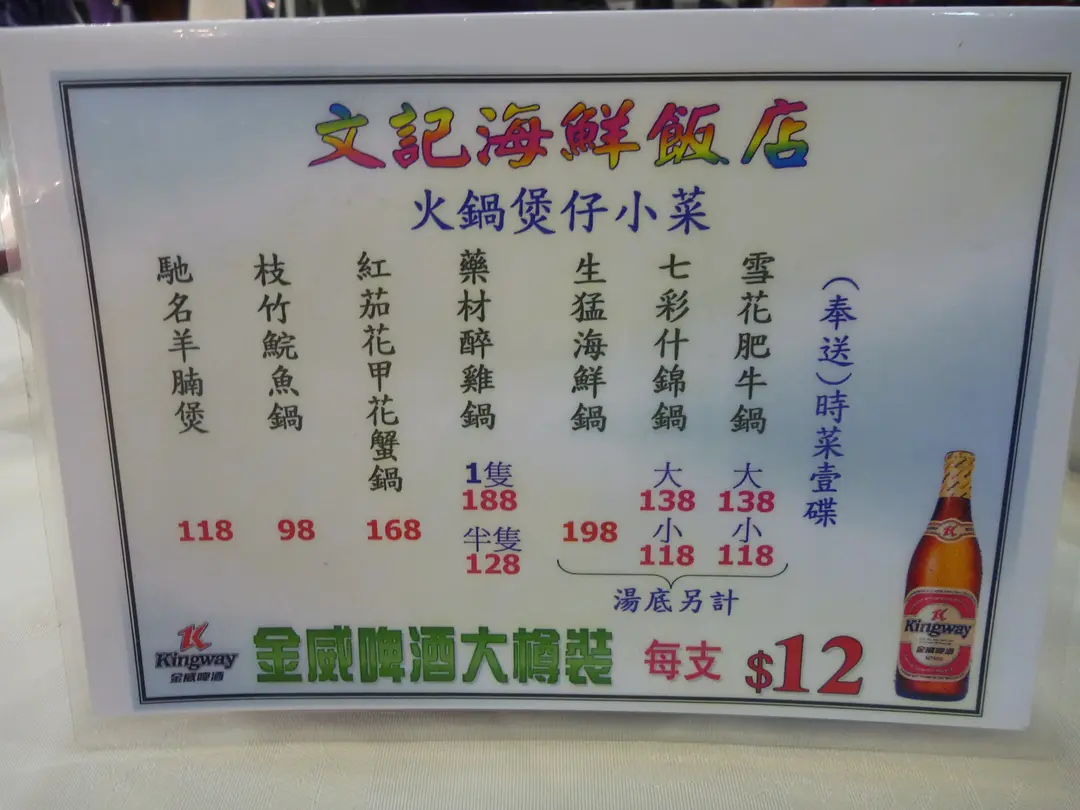 文記海鮮飯店
火鍋煲仔小菜
（奉送）時菜壹碟
雪花肥牛鍋
大
138
小
118
七彩什錦鍋
大
138
小
118
生猛海鮮鍋
198
湯底另計
藥材醉雞鍋
1隻
188
半隻
128
紅茄花甲花蟹鍋
168
枝竹鯇魚鍋
98
馳名羊腩煲
118
Kingway
金威啤酒
金威啤酒大樽裝 每支 $12
Kingway
金威啤酒